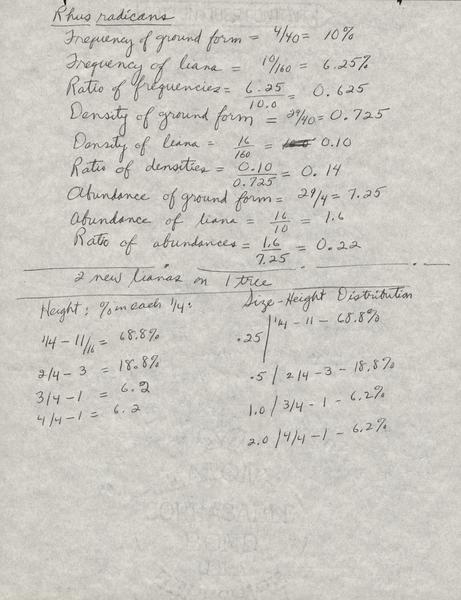 Rhus radicans
Frequency of ground form = 4/40 = 10%
Frequency of liana = 10/160 = 6.25%
Ratio of frequencies = 6.25/10.0 = 0.625
Density of ground form = 29/40 = 0.725
Density of liana = 16/160 = 0.10
Ratio of densities = 0.10/0.725 = 0.14
Abundance of ground form = 29/4 = 7.25
Abundance of liana = 16/10 = 1.6
Ratio of abundances = 1.6/7.25 = 0.22
2 new lianas on 1 tree
Height: % in each 1/4:
1/4 - 11/16 = 68.8%
2/4 - 3 = 18.8%
3/4 - 1 = 6.2
4/4 - 1 = 6.2
Size-Height Distribution
.25 / 1/4 - 11 - 68.8%
.5 / 2/4 - 3 - 18.8%
1.0 / 3/4 - 1 - 6.2%
2.0 / 4/4 - 1 - 6.2%